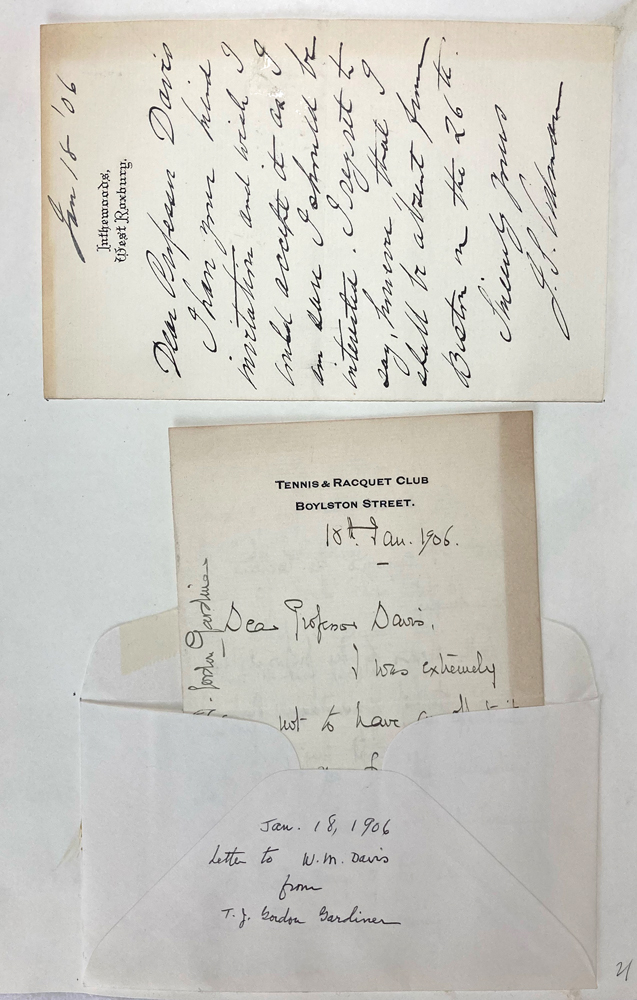 Jan 18 '06
Inthewoods,
West Roxbury.
Dear Professor Davis
I have your kind
invitation and wish I
could accept it as I
am sure I should be
interested. I regret to
say, however that I
shall be absent from
Boston on the 26th.
Sincerely yours
TENNIS & RACQUET CLUB
BOYLSTON STREET.
18th Jan. 1906.
Dear Professor Davis,
I was extremely
not to have
Gordon Gardiner
Jan. 18, 1906
Letter to W. M. Davis
from
T. J. Gordon Gardiner
21